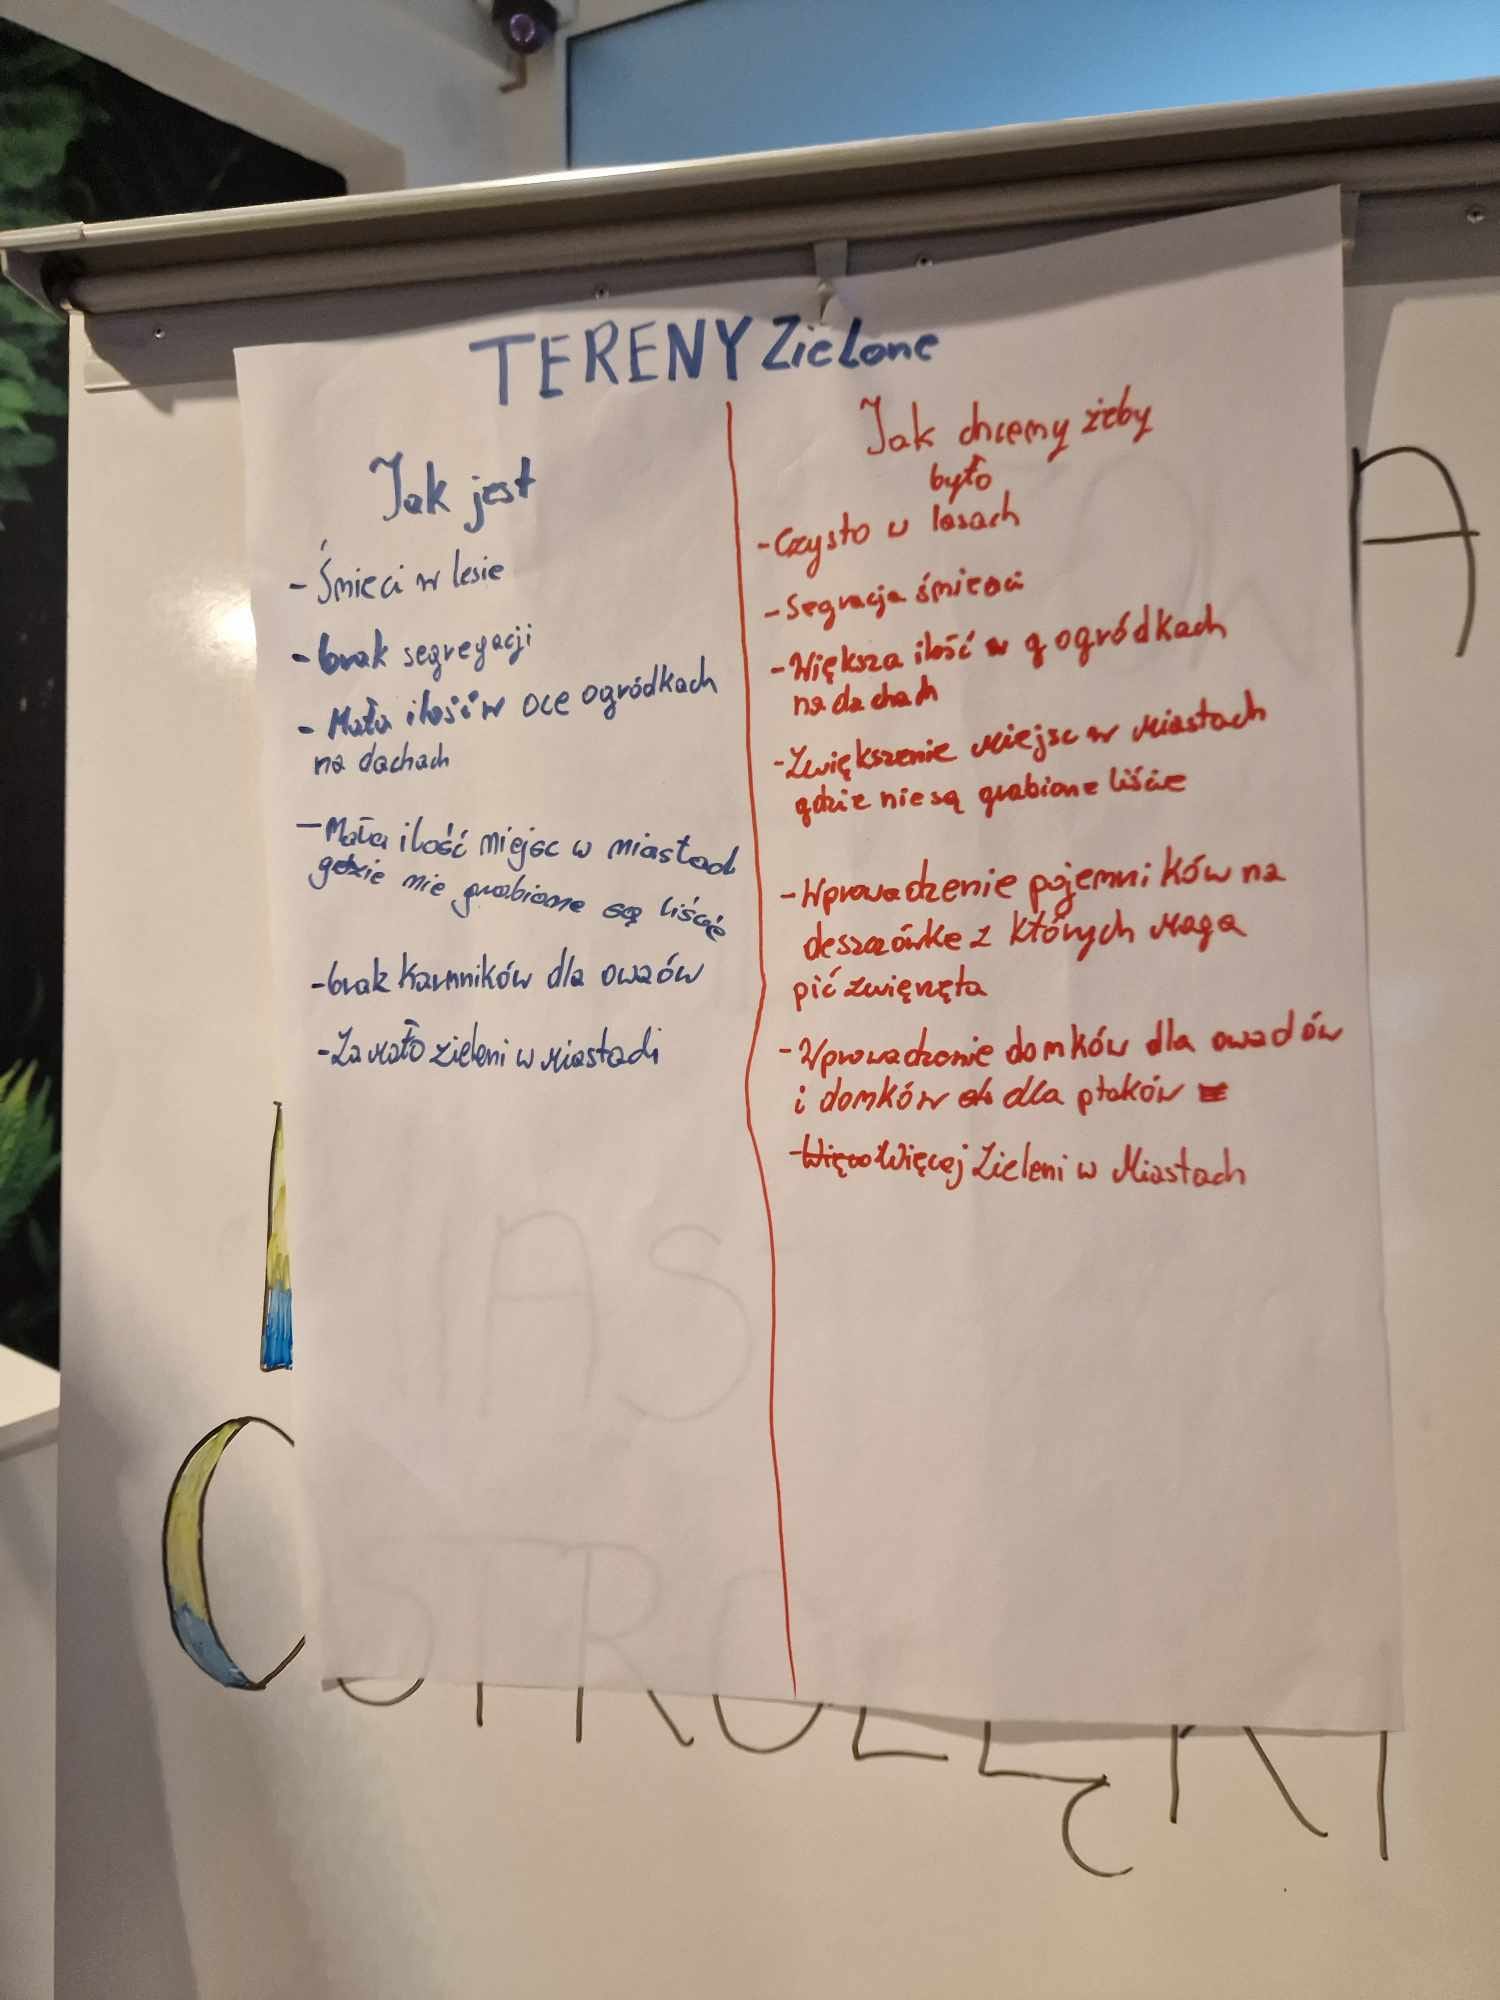 TERENY Zielone
Jak jest
- Śmieci w lesie
- brak segregacji
- Mała ilość w oce ogródkach
na dachach
- Mała ilość miejsc w miastach
gdzie nie grabione są liście
- brak karmników dla owadów
- Za mało zieleni w Miastach
Jak chcemy żeby
było
- Czysto w lasach
- Segracja śmieci
- Większa ilość ogródkach
na dachach
- Zwiększenie Miejsc w Miastach
gdzie nie są grabione liście
- Wprowadzenie pojemników na
deszczówke z których maga
pić zwięrzęta
- Wprowadzenie domków dla owadów
i domków dla ptaków
- Więcej Zieleni w Miastach
A
STROŁĘKI